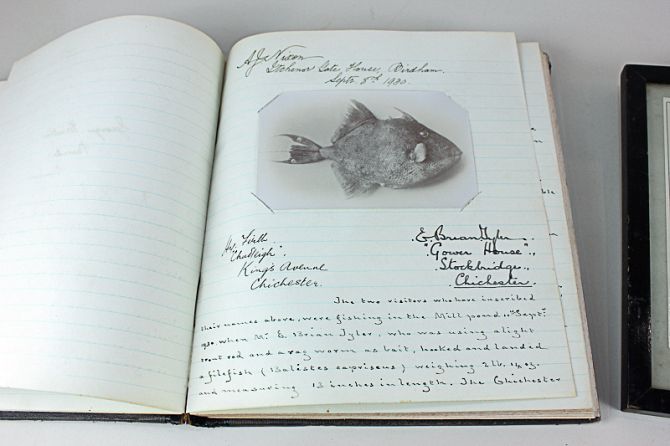 A.J. Nixon
Itchenor Gate House, Birdham.
Septr. 8th 1930.
Firth
"Chudleigh".
King's Avenue
Chichester.
E. Brian Tyler.
"Gower House".,
Stockbridge.,
Chichester.
The two visitors who have inscribed
their names above, were fishing in the Mill pond on Sept.
1930. when Mr. E. Brian Tyler, who was using a light
trout rod and a rag worm as bait, hooked and landed
a filefish (Balistes capriscus) weighing 2 lb. 14 oz.
and measuring 13 inches in length. The Chichester